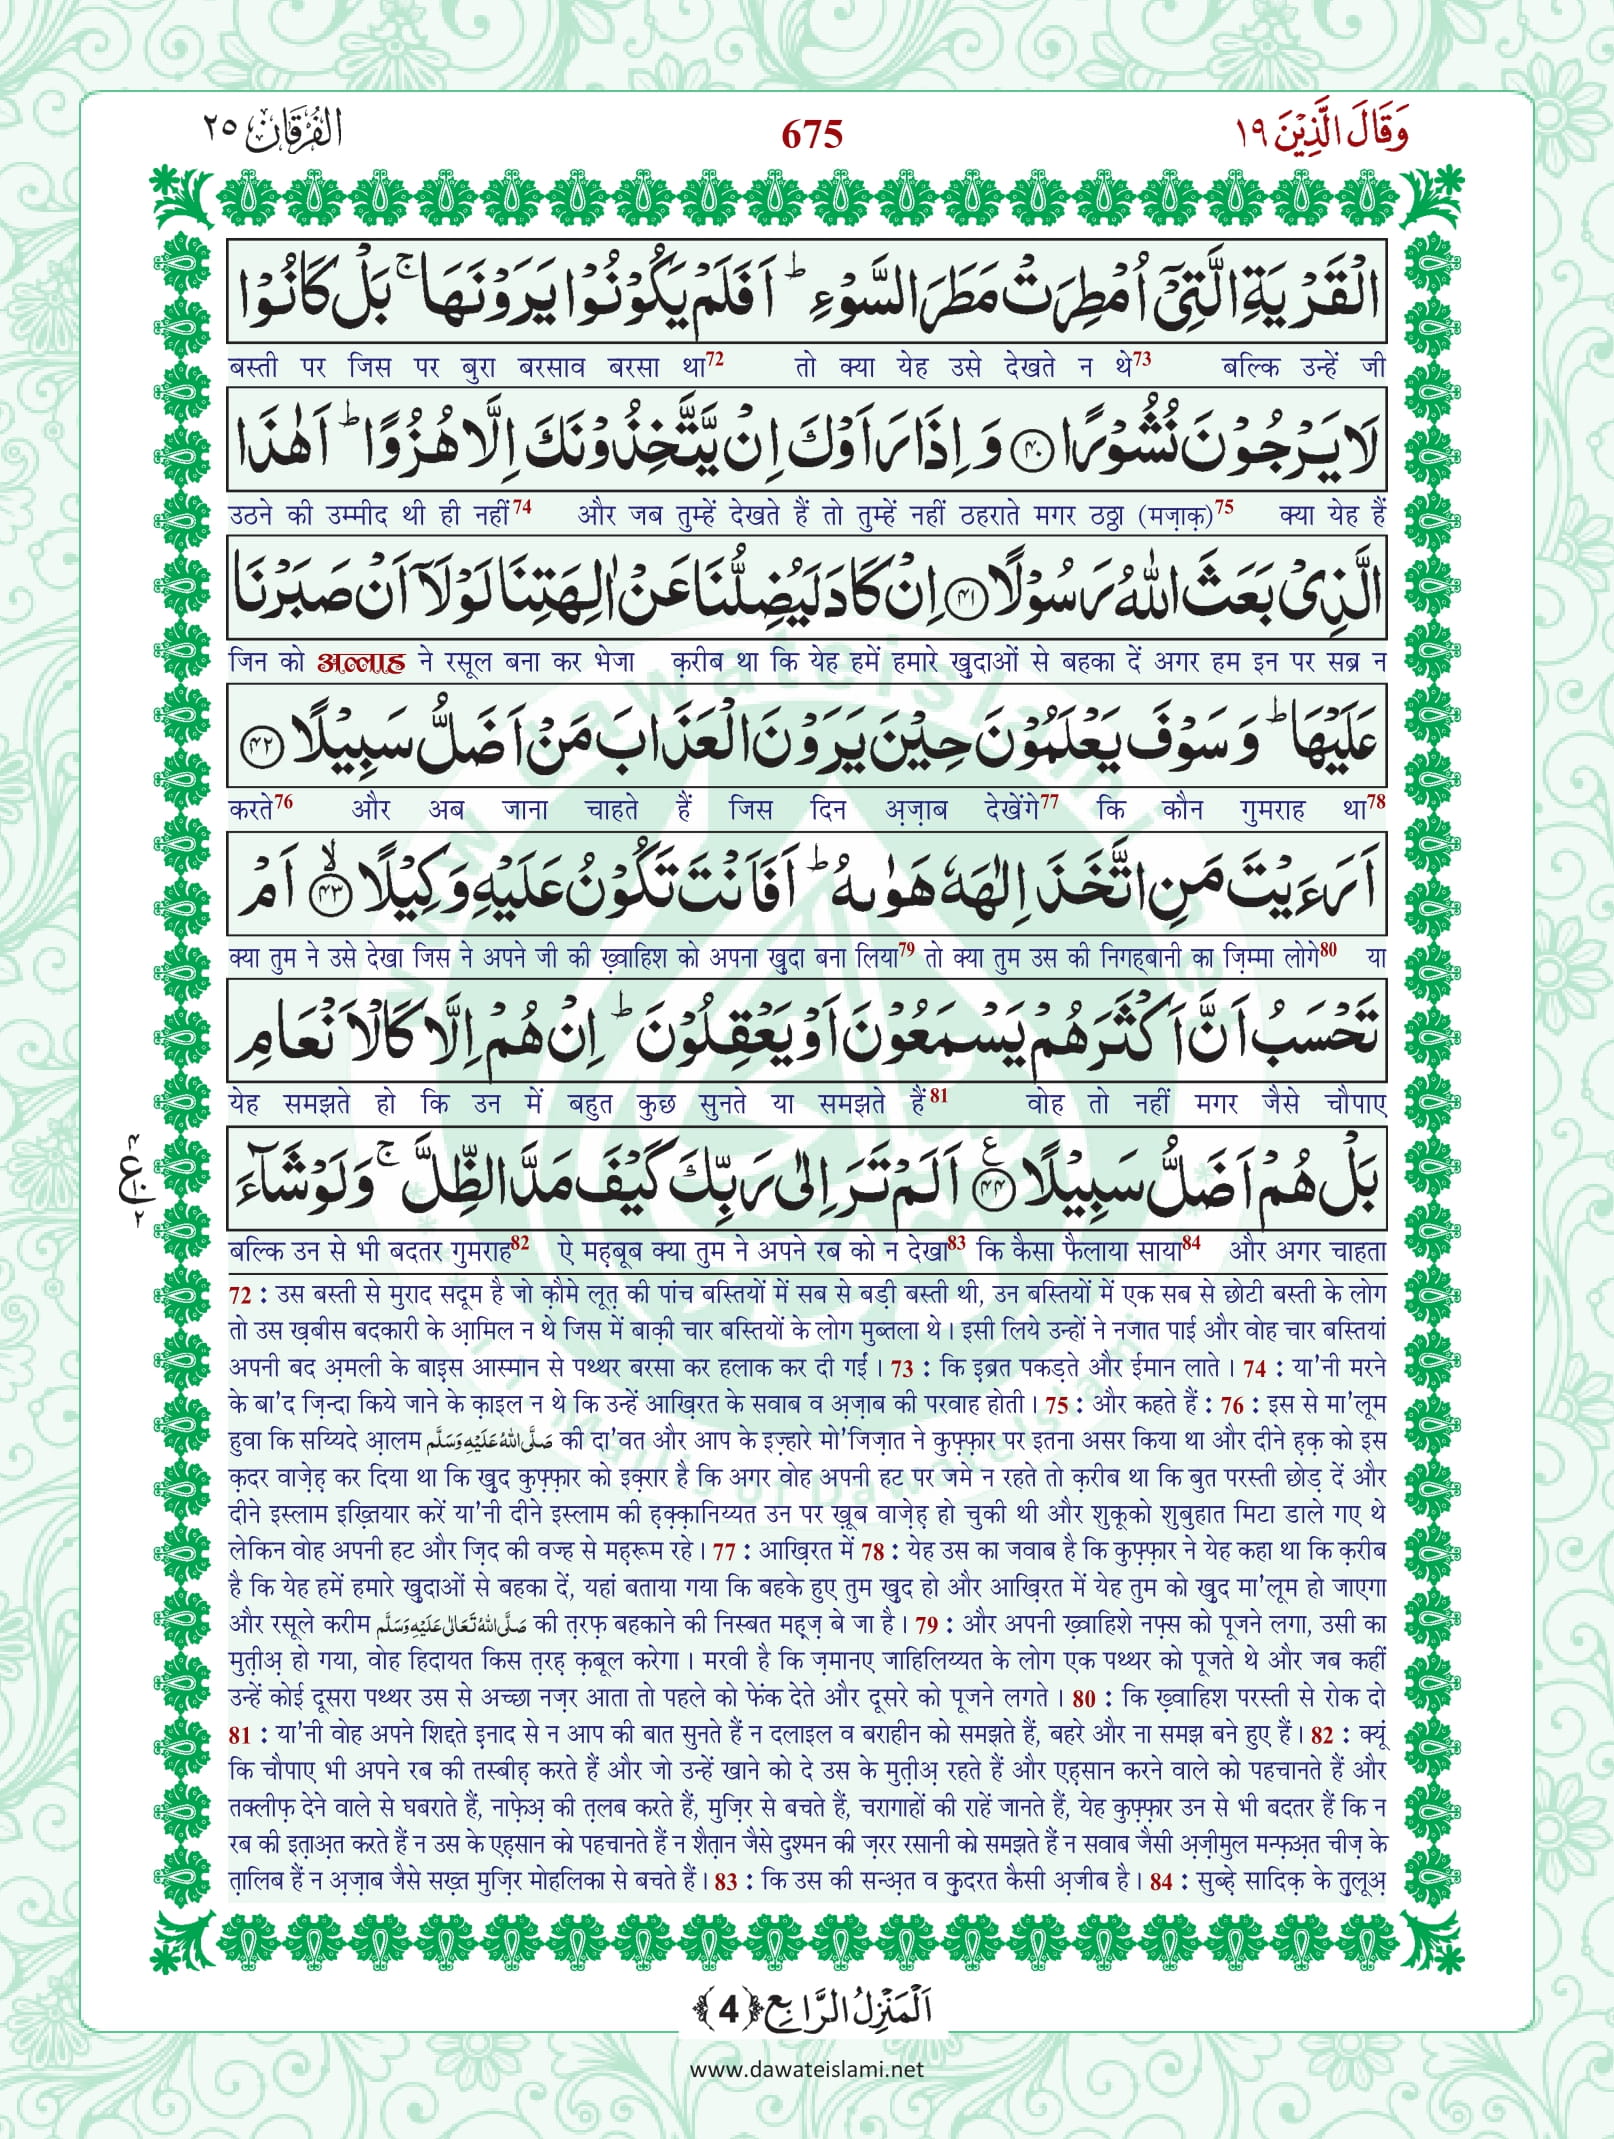 وَقَالَ الَّذِيْنَ ١٩
675
الفُرْقَان ٢٥
الْقَرْيَةِ الَّتِيْۤ اُمْطِرَتْ مَطَرَ السَّوْءِ ؕ اَفَلَمْ يَكُوْنُوْا يَرَوْنَهَا ۚ بَلْ كَانُوْا
बस्ती पर जिस पर बुरा बरसाव बरसा था72 तो क्या येह उसे देखते न थे73 बल्कि उन्हें जी
لَا يَرْجُوْنَ نُشُوْرًا ﴿۴۰﴾ وَ اِذَا رَاَوْكَ اِنْ يَّتَّخِذُوْنَكَ اِلَّا هُزُوًا ؕ اَهٰذَا
उठने की उम्मीद थी ही नहीं74 और जब तुम्हें देखते हैं तो तुम्हें नहीं ठहराते मगर ठठ्ठा (मज़ाक़)75 क्या येह हैं
الَّذِيْ بَعَثَ اللّٰهُ رَسُوْلًا ﴿۴۱﴾ اِنْ كَادَ لَيُضِلُّنَا عَنْ اٰلِهَتِنَا لَوْلَاۤ اَنْ صَبَرْنَا
जिन को अल्लाह ने रसूल बना कर भेजा क़रीब था कि येह हमें हमारे ख़ुदाओं से बहका दें अगर हम इन पर सब्र न
عَلَيْهَا ؕ وَ سَوْفَ يَعْلَمُوْنَ حِيْنَ يَرَوْنَ الْعَذَابَ مَنْ اَضَلُّ سَبِيْلًا ﴿۴۲﴾
करते76 और अब जाना चाहते हैं जिस दिन अ़ज़ाब देखेंगे77 कि कौन गुमराह था78
اَرَءَيْتَ مَنِ اتَّخَذَ اِلٰهَهٗ هَوٰىهُ ؕ اَفَاَنْتَ تَكُوْنُ عَلَيْهِ وَكِيْلًا ﴿۴۳﴾ ۙ اَمْ
क्या तुम ने उसे देखा जिस ने अपने जी की ख़्वाहिश को अपना ख़ुदा बना लिया79 तो क्या तुम उस की निगह्बानी का ज़िम्मा लोगे80 या
تَحْسَبُ اَنَّ اَكْثَرَهُمْ يَسْمَعُوْنَ اَوْ يَعْقِلُوْنَ ؕ اِنْ هُمْ اِلَّا كَالْاَنْعَامِ
येह समझते हो कि उन में बहुत कुछ सुनते या समझते हैं81 वोह तो नहीं मगर जैसे चौपाए
بَلْ هُمْ اَضَلُّ سَبِيْلًا ﴿۴۴﴾ ع اَلَمْ تَرَ اِلٰى رَبِّكَ كَيْفَ مَدَّ الظِّلَّ ۚ وَ لَوْ شَآءَ
۴ ع ۱۰ ۲
बल्कि उन से भी बदतर गुमराह82 ऐ मह़बूब क्या तुम ने अपने रब को न देखा83 कि कैसा फैलाया साया84 और अगर चाहता
72 : उस बस्ती से मुराद सदूम है जो क़ौमे लूत़ की पांच बस्तियों में सब से बड़ी बस्ती थी, उन बस्तियों में एक सब से छोटी बस्ती के लोग
तो उस ख़बीस बदकारी के आ़मिल न थे जिस में बाक़ी चार बस्तियों के लोग मुब्तला थे । इसी लिये उन्हों ने नजात पाई और वोह चार बस्तियां
अपनी बद अ़मली के बाइस आस्मान से पथ्थर बरसा कर हलाक कर दी गईं । 73 : कि इब्रत पकड़ते और ईमान लाते । 74 : या'नी मरने
के बा'द ज़िन्दा किये जाने के क़ाइल न थे कि उन्हें आख़िरत के सवाब व अ़ज़ाब की परवाह होती । 75 : और कहते हैं : 76 : इस से मा'लूम
हुवा कि सय्यिदे आ़लम صَلَّى اللهُ عَلَيْهِ وَسَلَّم की दा'वत और आप के इज़्हारे मो'जिज़ात ने कुफ़्फ़ार पर इतना असर किया था और दीने ह़क़ को इस
क़दर वाज़ेह़ कर दिया था कि ख़ुद कुफ़्फ़ार को इक़्रार है कि अगर वोह अपनी हट पर जमे न रहते तो क़रीब था कि बुत परस्ती छोड़ दें और
दीने इस्लाम इख़्तियार करें या'नी दीने इस्लाम की ह़क़्क़ानिय्यत उन पर ख़ूब वाज़ेह़ हो चुकी थी और शुकूको शुबुहात मिटा डाले गए थे
लेकिन वोह अपनी हट और ज़िद की वज्ह से मह़रूम रहे । 77 : आख़िरत में 78 : येह उस का जवाब है कि कुफ़्फ़ार ने येह कहा था कि क़रीब
है कि येह हमें हमारे ख़ुदाओं से बहका दें, यहां बताया गया कि बहके हुए तुम ख़ुद हो और आख़िरत में येह तुम को ख़ुद मा'लूम हो जाएगा
और रसूले करीम صَلَّى اللهُ تَعَالٰى عَلَيْهِ وَسَلَّم की त़रफ़ बहकाने की निस्बत मह़्ज़ बे जा है । 79 : और अपनी ख़्वाहिशे नफ़्स को पूजने लगा, उसी का
मुत़ीअ़ हो गया, वोह हिदायत किस त़रह़ क़बूल करेगा । मरवी है कि ज़मानए जाहिलिय्यत के लोग एक पथ्थर को पूजते थे और जब कहीं
उन्हें कोई दूसरा पथ्थर उस से अच्छा नज़र आता तो पहले को फेंक देते और दूसरे को पूजने लगते । 80 : कि ख़्वाहिश परस्ती से रोक दो
81 : या'नी वोह अपने शिद्दते इ़नाद से न आप की बात सुनते हैं न दलाइल व बराहीन को समझते हैं, बहरे और ना समझ बने हुए हैं । 82 : क्यूं
कि चौपाए भी अपने रब की तस्बीह़ करते हैं और जो उन्हें खाने को दे उस के मुत़ीअ़ रहते हैं और एह़सान करने वाले को पहचानते हैं और
तक्लीफ़ देने वाले से घबराते हैं, नाफ़ेअ़ की त़लब करते हैं, मुज़िर से बचते हैं, चरागाहों की राहें जानते हैं, येह कुफ़्फ़ार उन से भी बदतर हैं कि न
रब की इत़ाअ़त करते हैं न उस के एह़सान को पहचानते हैं न शैत़ान जैसे दुश्मन की ज़रर रसानी को समझते हैं न सवाब जैसी अ़ज़ीमुल मन्फ़अ़त चीज़ के
त़ालिब हैं न अ़ज़ाब जैसे सख़्त मुज़िर मोहलिका से बचते हैं । 83 : कि उस की सन्अ़त व क़ुदरत कैसी अ़जीब है । 84 : सुब्ह़े सादिक़ के त़ुलूअ़
اَلْمَنْزِلُ الرَّابِع ﴿4﴾
www.dawateislami.net